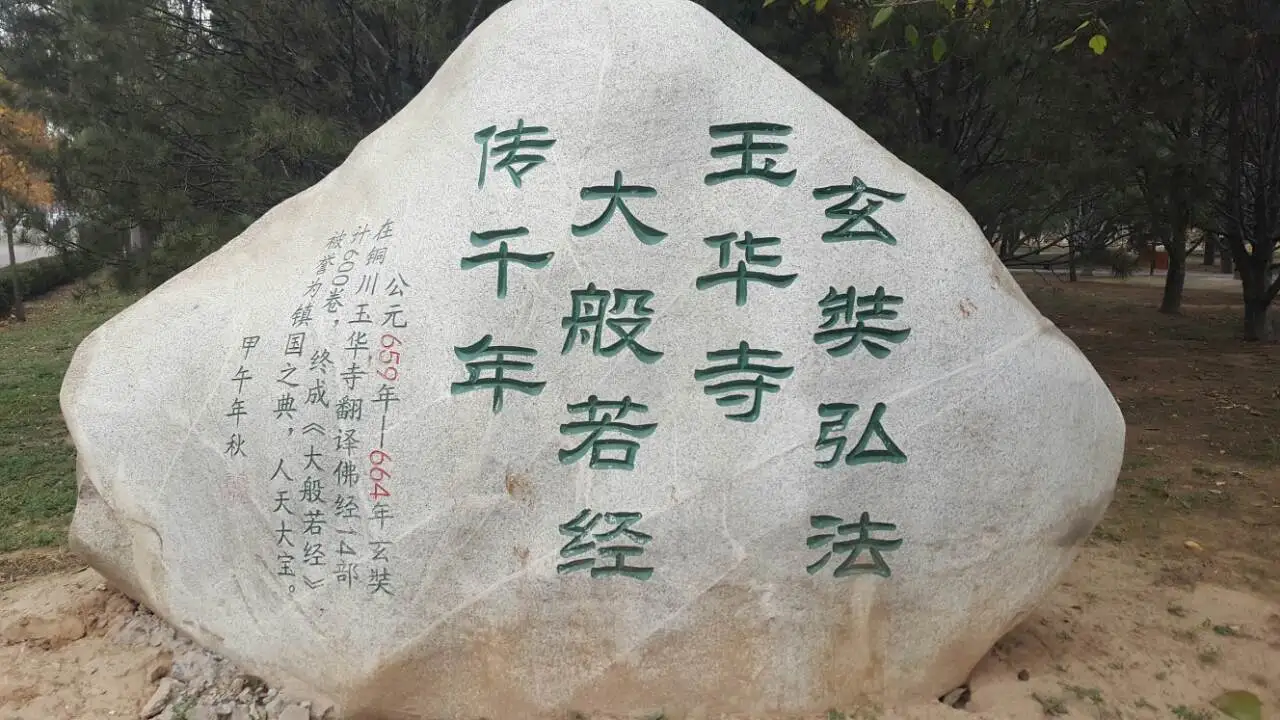 玄奘弘法
玉华寺
大般若经
传千年
公元659年—664年玄奘
在铜川玉华寺翻译佛经14部
计600卷，终成《大般若经》，
被誉为镇国之典，人天大宝。
甲午年秋